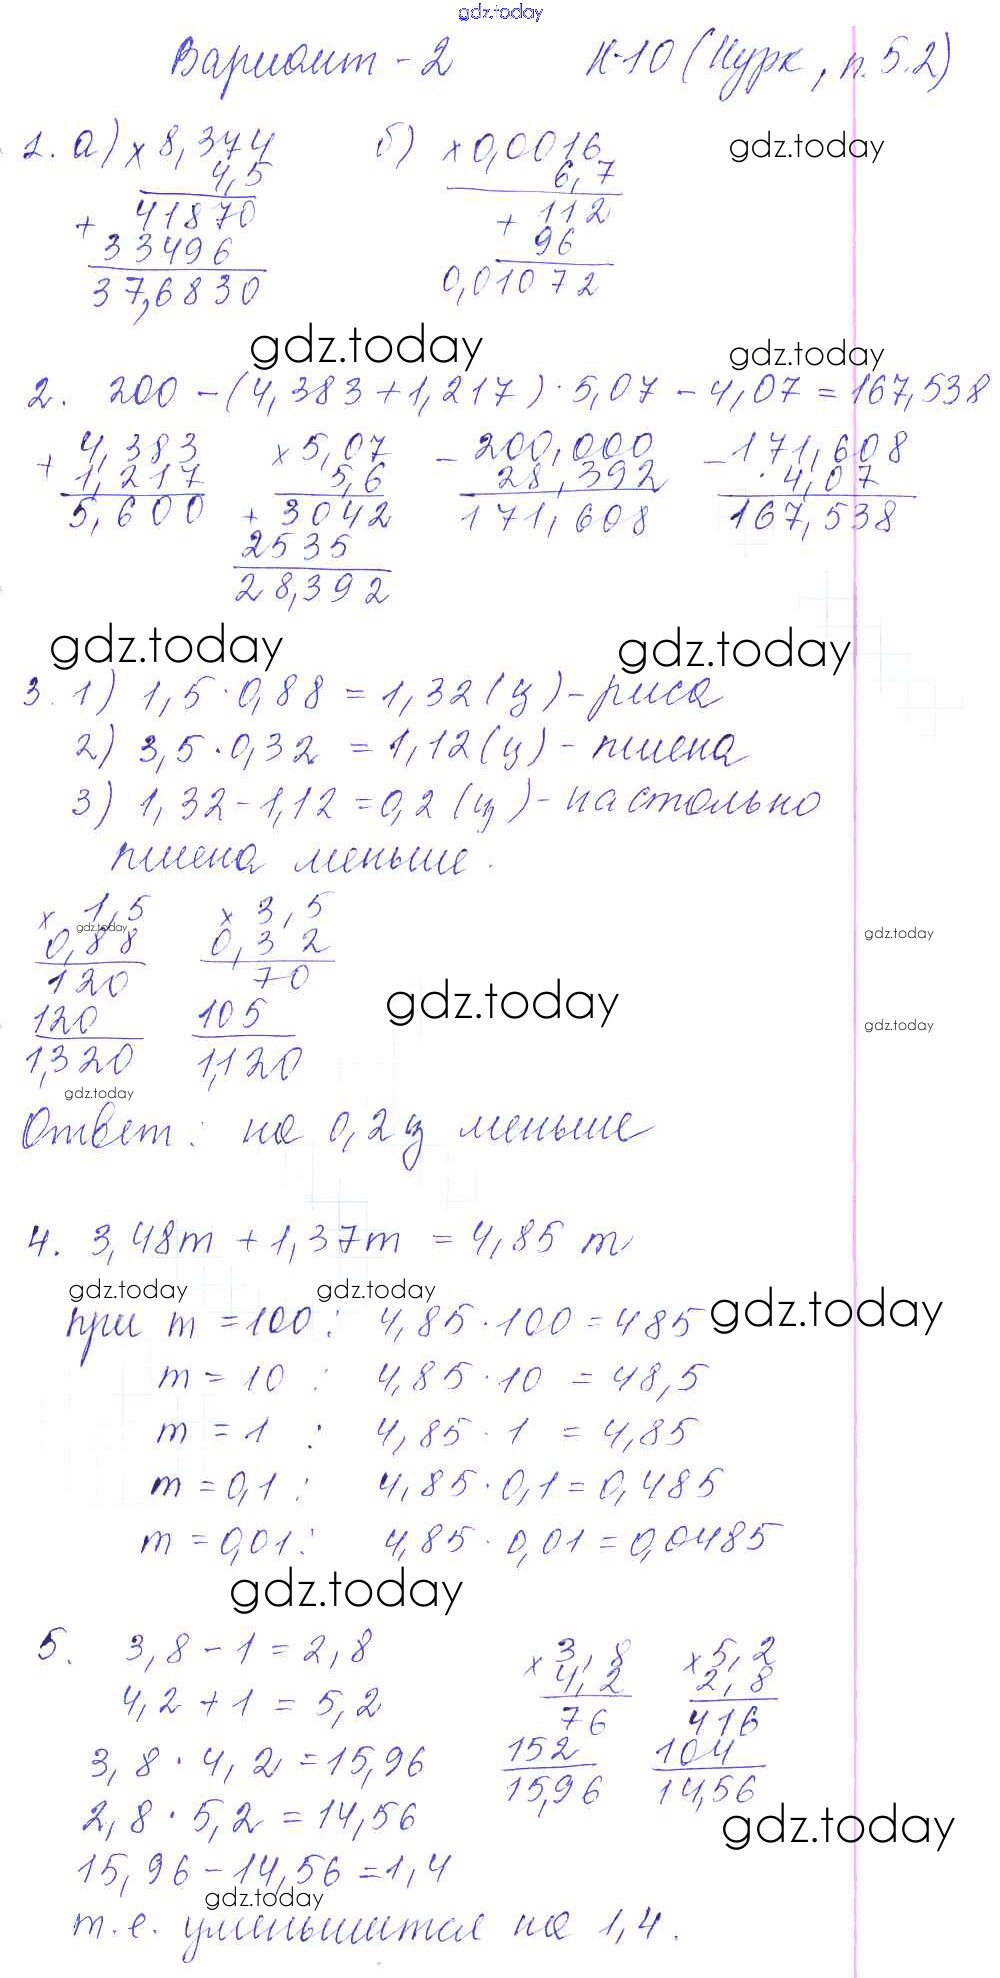 gdz.today
Вариант - 2 К-10 (Нурк, п. 5.2)
1. а) × 8,374 б) × 0,0016 gdz.today
4,5 6,7
+ 41870 + 112
33496 96
37,6830 0,01072
gdz.today gdz.today
2. 200 - (4,383 + 1,217) · 5,07 - 4,07 = 167,538
+ 4,383 × 5,07 - 200,000 - 171,608
1,217 5,6 28,392 4,07
5,600 + 3042 171,608 167,538
2535
28,392
gdz.today gdz.today
3. 1) 1,5 · 0,88 = 1,32 (ц) - риса
2) 3,5 · 0,32 = 1,12 (ц) - пшена
3) 1,32 - 1,12 = 0,2 (ц) - настолько
пшена меньше.
× 1,5 × 3,5
gdz.today gdz.today
0,88 0,32
120 70
gdz.today
120 105 gdz.today
1,320 1,120
gdz.today
Ответ: на 0,2 ц меньше
4. 3,48m + 1,37m = 4,85 m
gdz.today gdz.today gdz.today
при m = 100 : 4,85 · 100 = 485
m = 10 : 4,85 · 10 = 48,5
m = 1 : 4,85 · 1 = 4,85
m = 0,1 : 4,85 · 0,1 = 0,485
m = 0,01 : 4,85 · 0,01 = 0,0485
gdz.today
5. 3,8 - 1 = 2,8 × 3,8 × 5,2
4,2 + 1 = 5,2 4,2 2,8
76 416
3,8 · 4,2 = 15,96 152 104
2,8 · 5,2 = 14,56 15,96 14,56
gdz.today
15,96 - 14,56 = 1,4
gdz.today
т.е. уменьшится на 1,4.